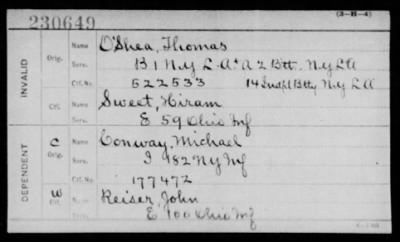 230649
(3-H-4)
INVALID
Orig.
Name O'Shea, Thomas
Serv. B 1 N.Y. L A & A 2 Btt. N.Y. L A
Ctf. No. 522533 14 Indpt Btty N.Y. L A
Ctf.
Name Sweet, Hiram
Serv. E 59 Ohio Inf
DEPENDENT
C
Orig.
Name Conway, Michael
Serv. I 182 N.Y. Inf
Ctf. No. 177472
W
Ctf.
Name Reiser, John
Serv. E 100 Ohio Inf